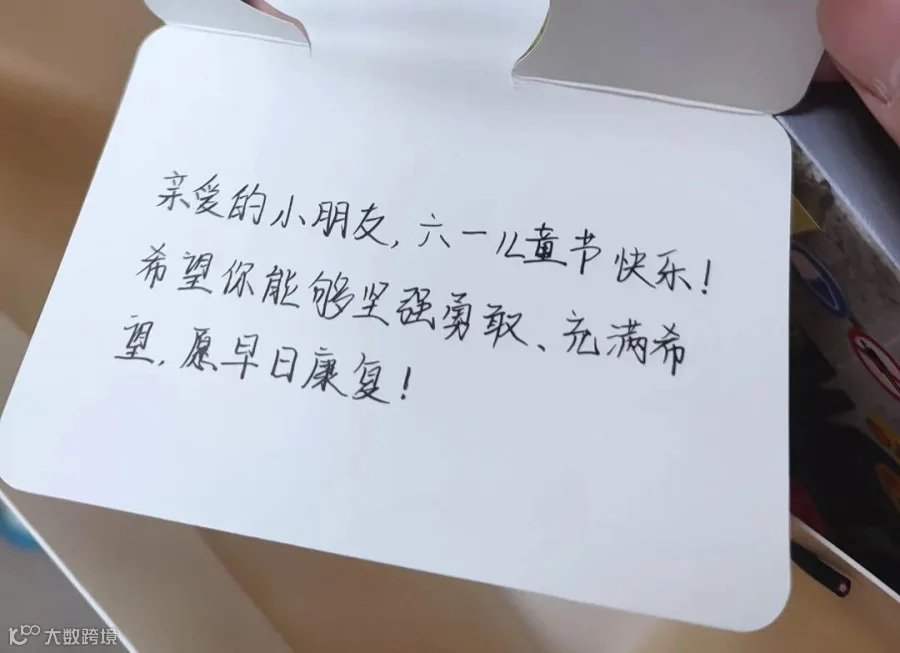 亲爱的小朋友，六一儿童节快乐！
希望你能够坚强勇敢、充满希
望，愿早日康复！
大数跨境